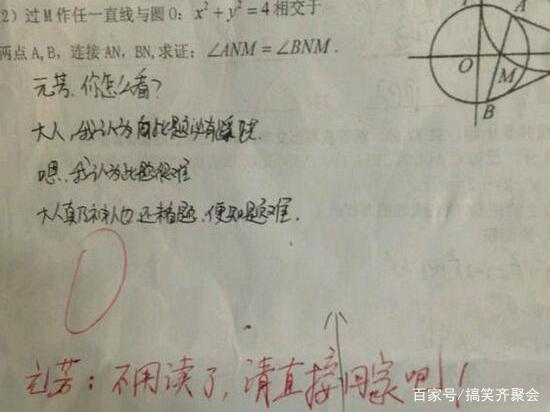 2)过M作任一直线与圆O:x²+y²=4相交于
两点A,B,连接AN,BN,求证:∠ANM=∠BNM.
A
O
M
B
元芳,你怎么看?
大人,我认为此题必有蹊跷.
嗯,我认为此题很难
大人真乃神人也,还未看题,便知题难.
0
元芳:不用读了,请直接回家吧!!
百家号/搞笑齐聚会